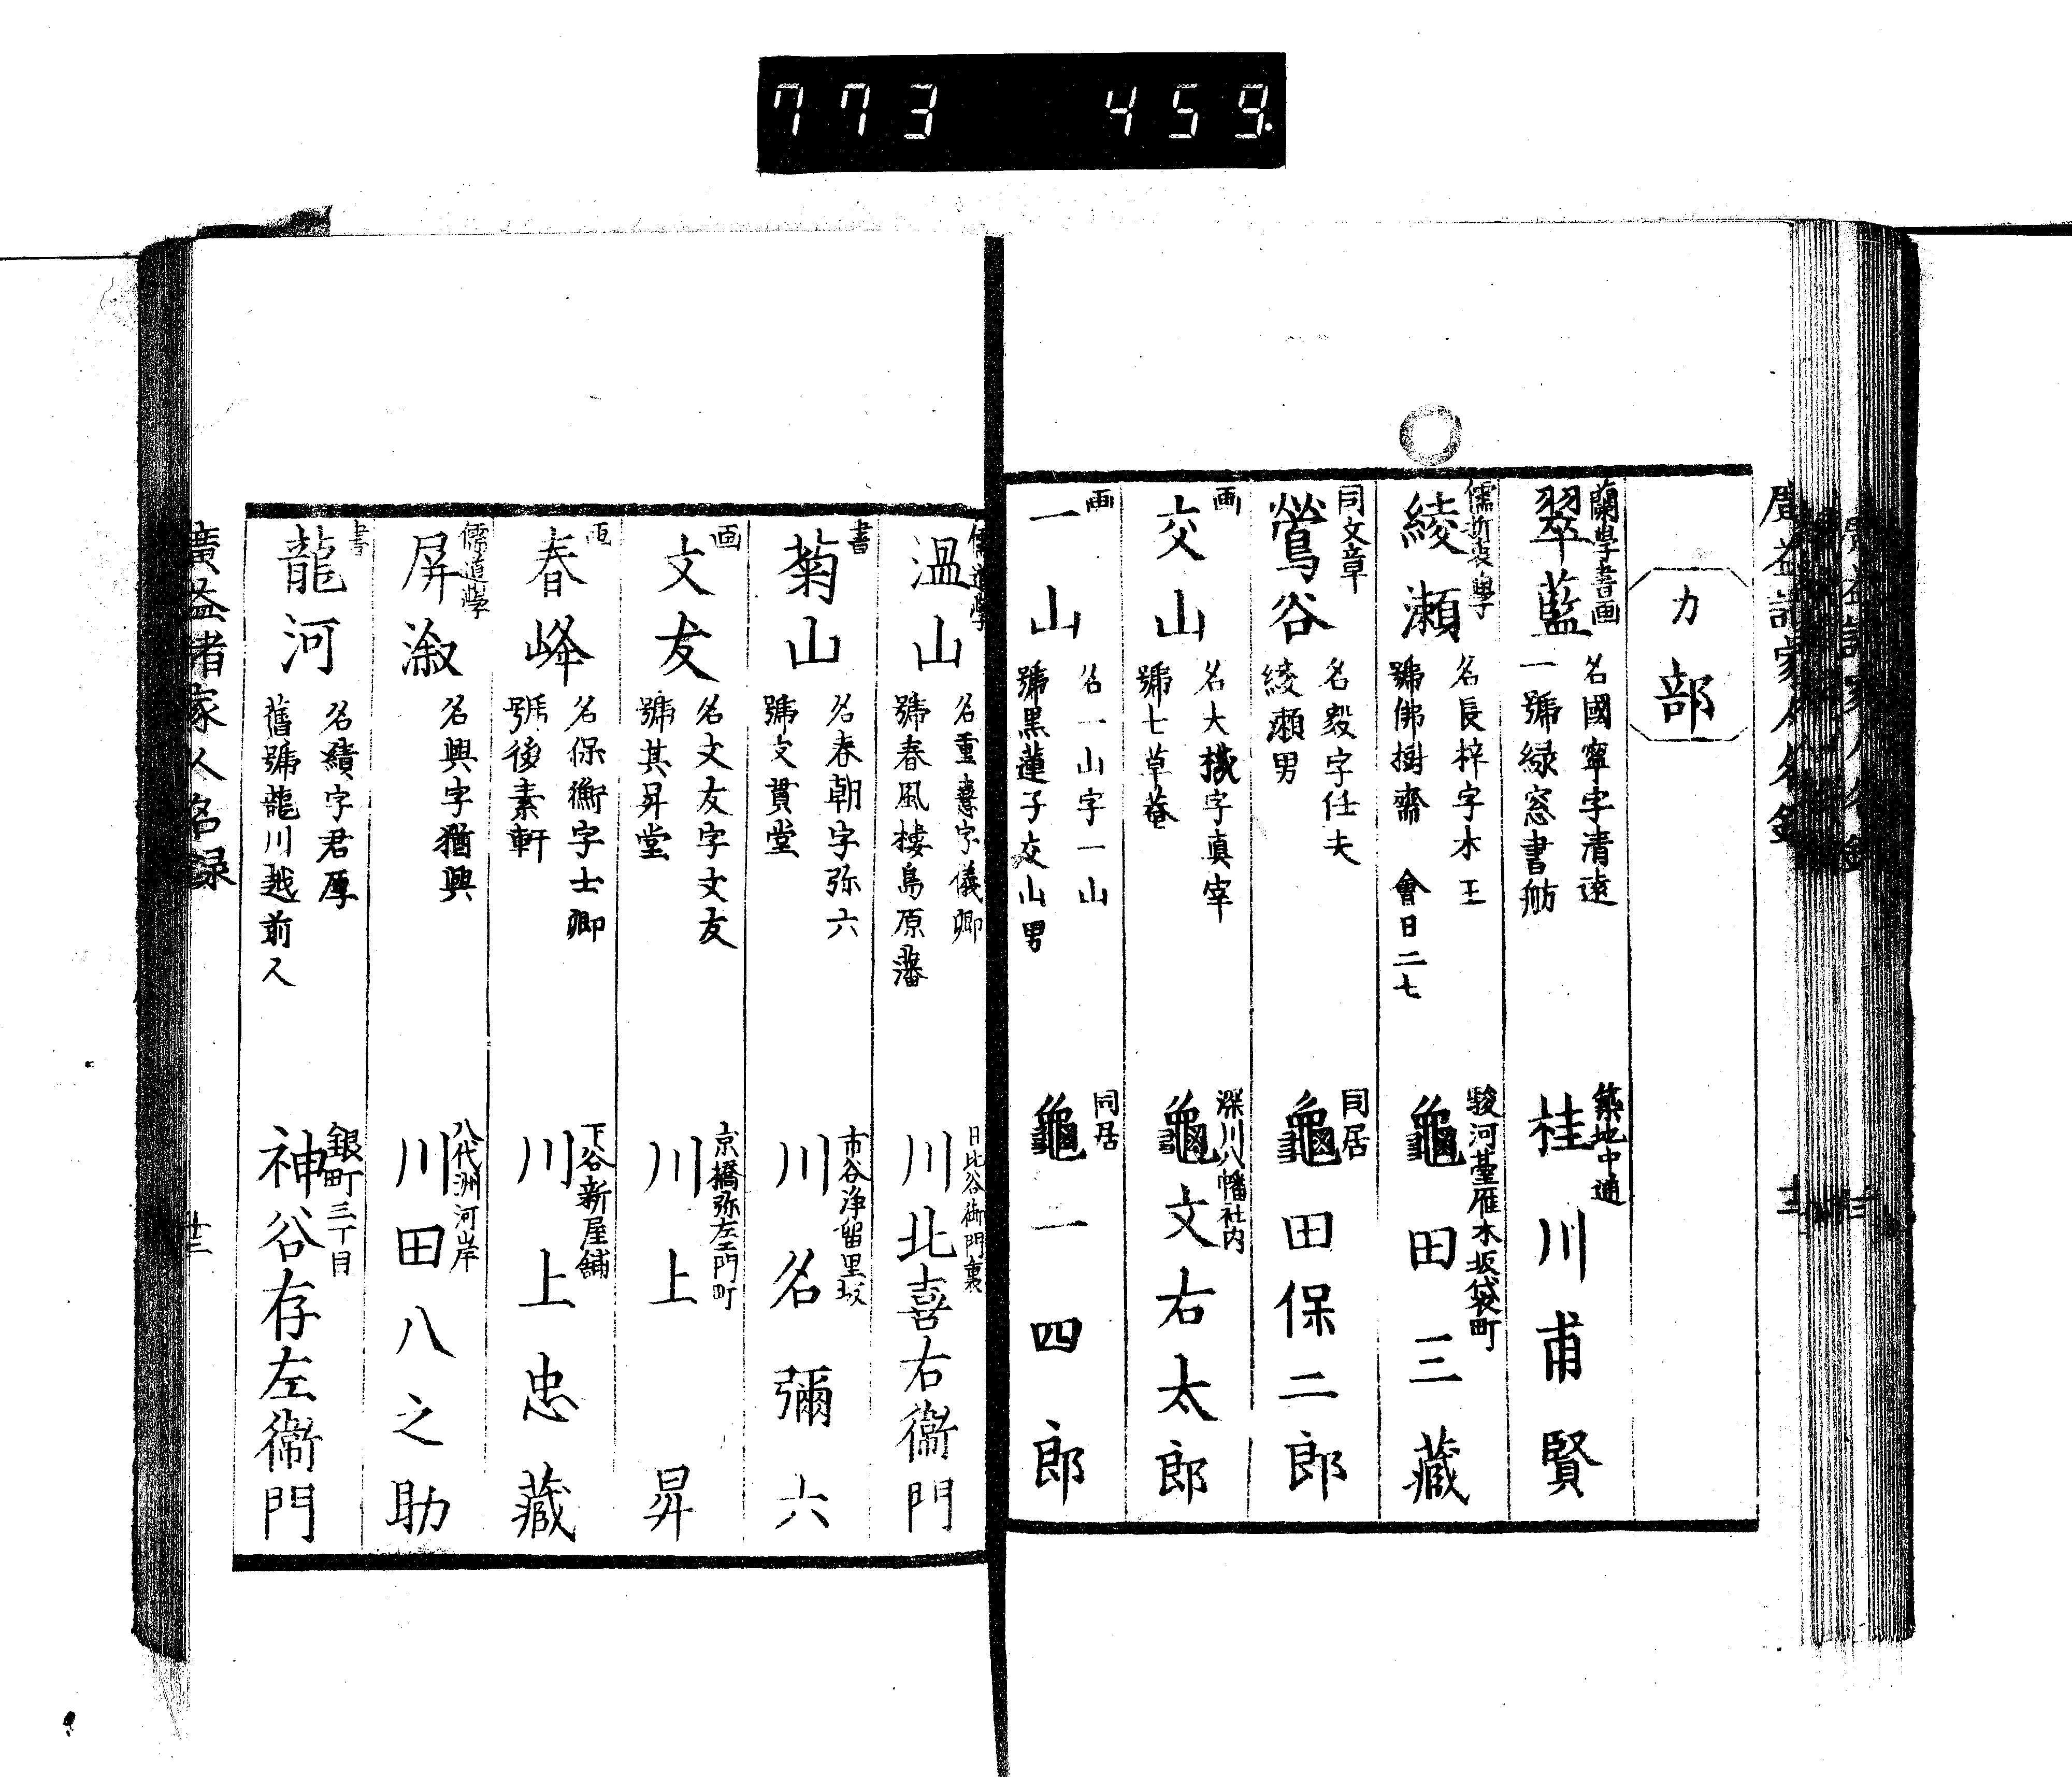 773 459.
カ部
蘭學書画
翠藍
名國寧字清遠
一號緑窓書舫
築地中通
桂川甫賢
儒折衷學
綾瀬
名長梓字木王
號佛樹齋 會日二七
駿河臺雁木坂袋町
龜田三藏
同文章
鶯谷
名毅字任夫
綾瀬男
同居
龜田保二郎
画
交山
名大機字真宰
號七草菴
深川八幡社内
龜文右太郎
画
一山
名一山字一山
號黒蓮子交山男
同居
龜一四郎
儒道學
温山
名重憙字儀卿
號春風樓島原藩
日比谷御門裏
川北喜右衞門
書
菊山
名春朝字弥六
號文貫堂
市谷浄留里坂
川名彌六
画
文友
名文友字文友
號其昇堂
京橋弥左エ門町
川上昇
画
春峰
名保衡字士卿
號後素軒
下谷新屋舗
川上忠藏
儒道學
屏溆
名興字猶興
八代洲河岸
川田八之助
書
龍河
名績字君厚
舊號龍川越前人
銀町三丁目
神谷存左衞門
廣益諸家人名録
廿三